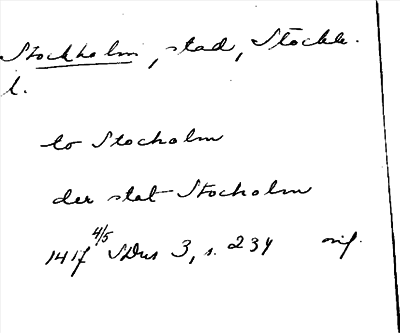 Stockholm, stad, Stockh.
l.
to Stocholm
der stat Stocholm
1417 4/5 SDns 3, s. 234 orig.